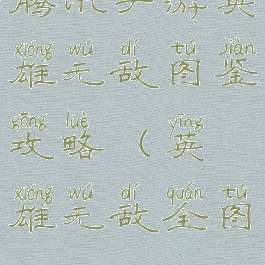 腾讯手游英
xióng wú dí tú jiàn
雄无敌图鉴
gōng lüè yīng
攻略（英
xióng wú dí quán tú
雄无敌全图